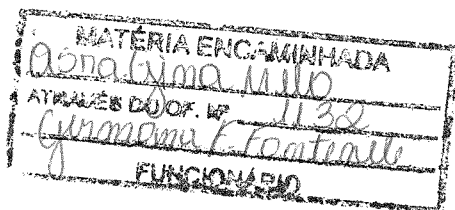 MATÉRIA ENCAMINHADA
Melo
ATRAVÉS DO OF. Nº 1132
Germana F. Fontenelle
FUNCIONÁRIO